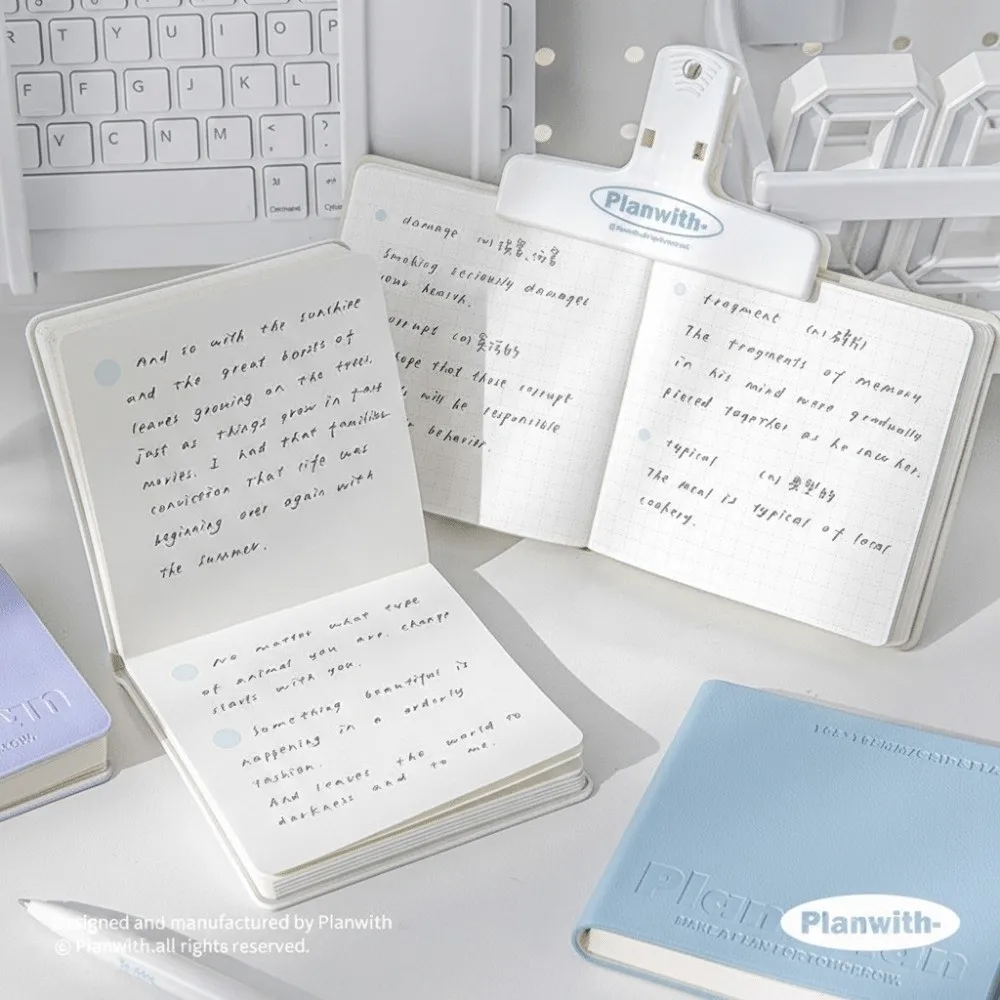 R T Y U I O P
F F G J K L
V C N M < ,
Planwith-
damage (n) 损害、伤害
Smoking seriously damages
your health.
corrupt (a)
hope that those corrupt
will be responsible
behavior.
fragment (n)
The fragments of memory
in his mind were gradually
pieced together as he saw her.
typical (a) 典型的
The meal is typical of local
cookery.
And so with the sunshine
and the great bursts of
leaves growing on the trees.
just as things grow in fast
movies. I had that familiar
conviction that life was
beginning over again with
the summer.
No matter what type
of animal you are. change
starts with you.
Something beautiful is
happening in a orderly
fashion.
And leaves the world to
darkness and to me.
Plan
MAKE A PLAN FOR TOMORROW.
Planwith-
Designed and manufactured by Planwith
© Planwith.all rights reserved.